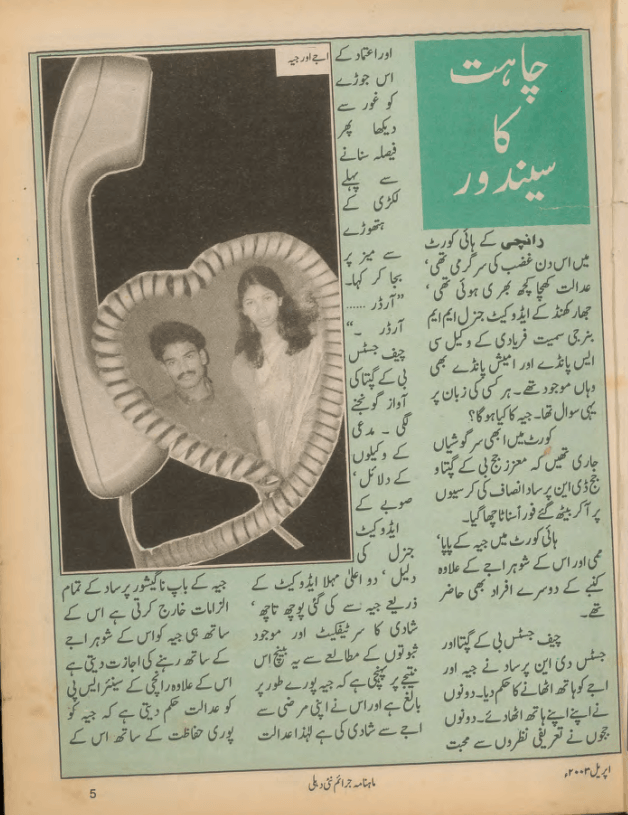 چاہت
کا
سیندور
رانچی کے ہائی کورٹ
میں اس دن غضب کی سرگرمی تھی‘
عدالت کھچا کھچ بھری ہوئی تھی‘
جھارکھنڈ کے ایڈوکیٹ جنرل ایم ایم
بنرجی سمیت فریادی کے وکیل سی
ایس پانڈے اور امیش پانڈے بھی
وہاں موجود تھے۔ ہر کسی کی زبان پر
یہی سوال تھا۔ جیہ کا کیا ہوگا؟
کورٹ میں ابھی سرگوشیاں
جاری تھیں کہ معزز جج بی کے گپتا و
جج ڈی این پرساد انصاف کی کرسیوں
پر آکر بیٹھ گئے فوراً سناٹا چھا گیا۔
ہائی کورٹ میں جیہ کے پاپا‘
ممی اور اس کے شوہر اجے کے علاوہ
کنبے کے دوسرے افراد بھی حاضر
تھے۔
چیف جسٹس بی کے گپتا اور
جسٹس دی این پرساد نے جیہ اور
اجے کو ہاتھ اٹھانے کا حکم دیا۔ دونوں
نے اپنے اپنے ہاتھ اٹھا دئے۔ دونوں
ججوں نے تعریفی نظروں سے محبت
اور اعتماد کے
اس جوڑے
کو غور سے
دیکھا پھر
فیصلہ سنانے
سے پہلے
لکڑی کے
ہتھوڑے
سے میز پر
بجا کر کہا۔
”آرڈر ......
آرڈر ۔“
چیف جسٹس
بی کے گپتا کی
آواز گونجنے
لگی ۔ مدعی
کے وکیلوں
کے دلائل‘
صوبے کے
ایڈوکیٹ
جنرل کی
دلیل‘ دو اعلیٰ مہلا ایڈوکیٹ کے
ذریعے جیہ سے کی گئی پوچھ تاچھ‘
شادی کا سرٹیفکیٹ اور موجود
ثبوتوں کے مطالعے سے یہ بینچ اس
نتیجے پر پہنچی ہے کہ جیہ پورے طور پر
بالغ ہے اور اس نے اپنی مرضی سے
اجے سے شادی کی ہے لہٰذا عدالت
اجے اور جیہ
جیہ کے باپ ناگیشور پرساد کے تمام
الزامات خارج کرتی ہے اس کے
ساتھ ہی جیہ کو اس کے شوہر اجے
کے ساتھ رہنے کی اجازت دیتی ہے
اس کے علاوہ رانچی کے سینئر ایس پی
کو عدالت حکم دیتی ہے کہ جیہ کو
پوری حفاظت کے ساتھ اس کے
اپریل ۲۰۰۳ء
ماہنامہ جرائم نئی دہلی
5